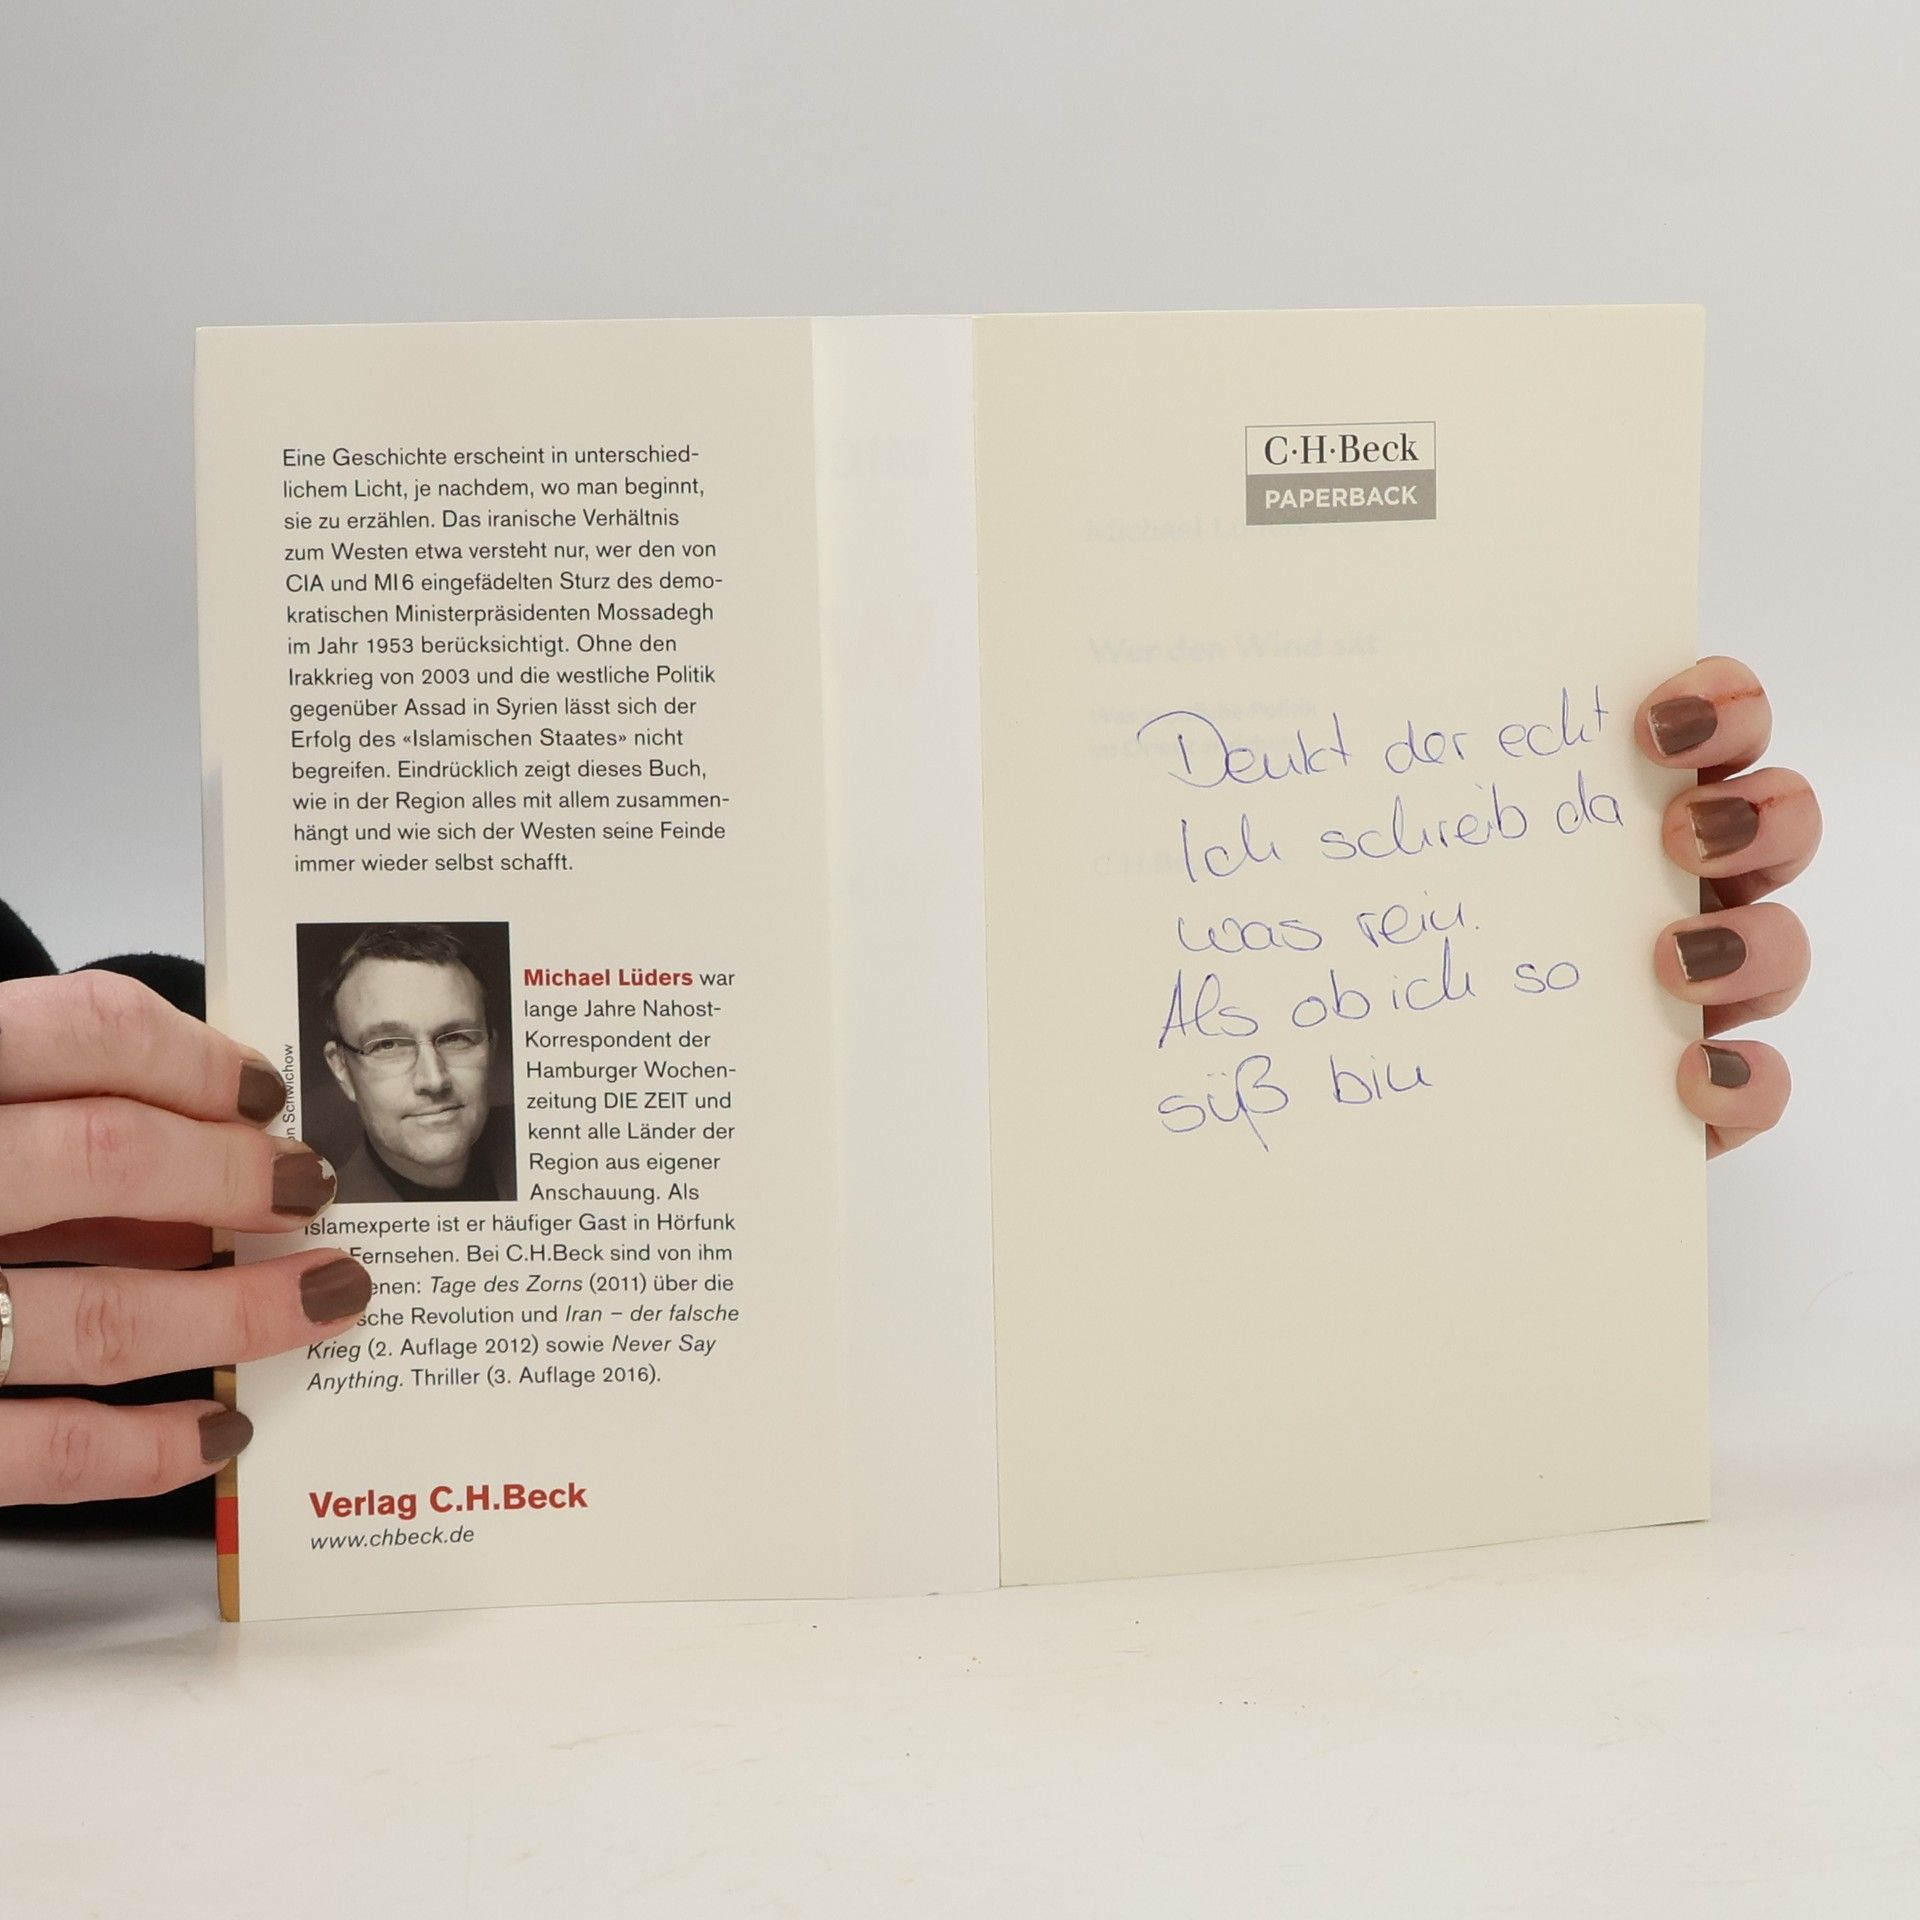 Eine Geschichte erscheint in unterschied-
lichem Licht, je nachdem, wo man beginnt,
sie zu erzählen. Das iranische Verhältnis
zum Westen etwa versteht nur, wer den von
CIA und MI6 eingefädelten Sturz des demo-
kratischen Ministerpräsidenten Mossadegh
im Jahr 1953 berücksichtigt. Ohne den
Irakkrieg von 2003 und die westliche Politik
gegenüber Assad in Syrien lässt sich der
Erfolg des «Islamischen Staates» nicht
begreifen. Eindrücklich zeigt dieses Buch,
wie in der Region alles mit allem zusammen-
hängt und wie sich der Westen seine Feinde
immer wieder selbst schafft.
Schwichow
Michael Lüders war
lange Jahre Nahost-
Korrespondent der
Hamburger Wochen-
zeitung DIE ZEIT und
kennt alle Länder der
Region aus eigener
Anschauung. Als
Islamexperte ist er häufiger Gast in Hörfunk
Fernsehen. Bei C.H.Beck sind von ihm
enen: Tage des Zorns (2011) über die
sche Revolution und Iran – der falsche
Krieg (2. Auflage 2012) sowie Never Say
Anything. Thriller (3. Auflage 2016).
Verlag C.H.Beck
www.chbeck.de
C·H·Beck
PAPERBACK
Michael Lüders
Wer den Wind sät
Denkt der echt
Ich schreib da
was rein.
Als ob ich so
süß bin